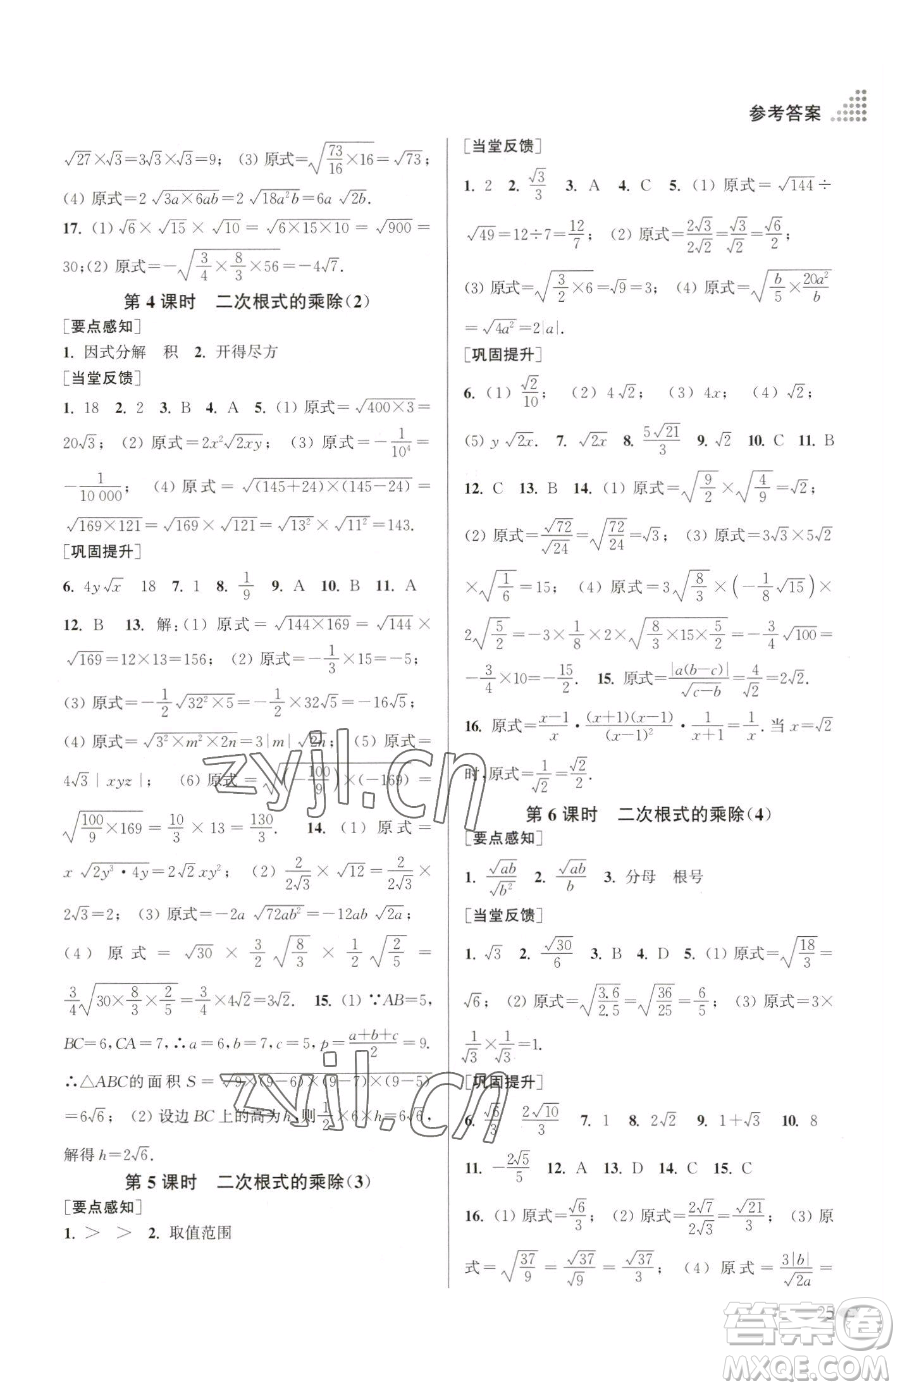 参考答案
√27×√3=3√3×√3=9; (3) 原式=√(73/16×16)=√73;
(4) 原式=2√(3a×6ab)=2√(18a²b)=6a√2b.
17. (1) √6×√15×√10=√(6×15×10)=√900=
30;(2) 原式=-√(3/4×8/3×56)=-4√7.
第 4 课时 二次根式的乘除(2)
[要点感知]
1. 因式分解 积 2. 开得尽方
[当堂反馈]
1. 18 2. 2 3. B 4. A 5. (1) 原式=√(400×3)=
20√3; (2) 原式=2x²√(2xy); (3) 原式=-1/10⁴=
-1/10 000; (4) 原式=√((145+24)×(145-24))=
√(169×121)=√169×√121=√13²×√11²=143.
[巩固提升]
6. 4y√x 18 7. 1 8. 1/9 9. A 10. B 11. A
12. B 13. 解:(1) 原式=√(144×169)=√144×
√169=12×13=156; (2) 原式=-1/3×15=-5;
(3) 原式=-1/2√(32²×5)=-1/2×32√5=-16√5;
(4) 原式=√(3²×m²×2n)=3|m|√2n; (5) 原式=
4√3|xyz|; (6) 原式=√((-100/9)×(-169))=
√(100/9×169)=10/3×13=130/3. 14. (1) 原式=
x√(2y³·4y)=2√2xy²; (2) 原式=2/(2√3)×√12=2/(2√3)×
2√3=2; (3) 原式=-2a√(72ab²)=-12ab√(2a);
(4) 原式=√30×3/2√(8/3)×1/2√(2/5)=
3/4√(30×8/3×2/5)=3/4×4√2=3√2. 15. (1) ∵AB=5,
BC=6,CA=7,∴a=6,b=7,c=5,p=(a+b+c)/2=9.
∴△ABC的面积S=√(9×(9-6)×(9-7)×(9-5))
=6√6; (2) 设边BC上的高为h,则1/2×6×h=6√6,
解得h=2√6.
第 5 课时 二次根式的乘除(3)
[要点感知]
1. > > 2. 取值范围
[当堂反馈]
1. 2 2. √3/3 3. A 4. C 5. (1) 原式=√144÷
√49=12÷7=12/7; (2) 原式=2√3/2√2=√3/√2=√6/2;
(3) 原式=√(3/2×6)=√9=3; (4) 原式=√(b/5×20a²/b)
=√4a²=2|a|.
[巩固提升]
6. (1) √2/10; (2) 4√2; (3) 4x; (4) √2;
(5) y√2x. 7. √2x 8. 5√21/3 9. √2 10. C 11. B
12. C 13. B 14. (1) 原式=√(9/2)×√(4/9)=√2;
(2) 原式=√72/√24=√(72/24)=√3; (3) 原式=3√3×5√2
×√(1/6)=15; (4) 原式=3√(8/3)×(-1/8√15)×
2√(5/2)=-3×1/8×2×√(8/3×15×5/2)=-3/4√100=
-3/4×10=-15/2. 15. 原式=|a(b-c)|/√(c-b)=4/√2=2√2.
16. 原式=(x-1)/x·(x+1)(x-1)/(x-1)²·1/(x+1)=1/x.当x=√2
时,原式=1/√2=√2/2.
第 6 课时 二次根式的乘除(4)
[要点感知]
1. √ab/√b² 2. √ab/b 3. 分母 根号
[当堂反馈]
1. √3 2. √30/6 3. B 4. D 5. (1) 原式=√(18/3)=
√6; (2) 原式=√(3.6/2.5)=√(36/25)=6/5; (3) 原式=3×
1/√3×1/√3=1.
[巩固提升]
6. √6/3 2√10/3 7. 1 8. 2√2 9. 1+√3 10. 8
11. -2√5/5 12. C 13. C 14. D 15. D
16. (1) 原式=√6/3; (2) 原式=2√7/2√3=√21/3; (3) 原
式=√(37/9)=√37/√9=√37/3; (4) 原式=3|b|/√2a=
25
zyjl.cn
zyjl.cn
答案圈
MXQE.COM